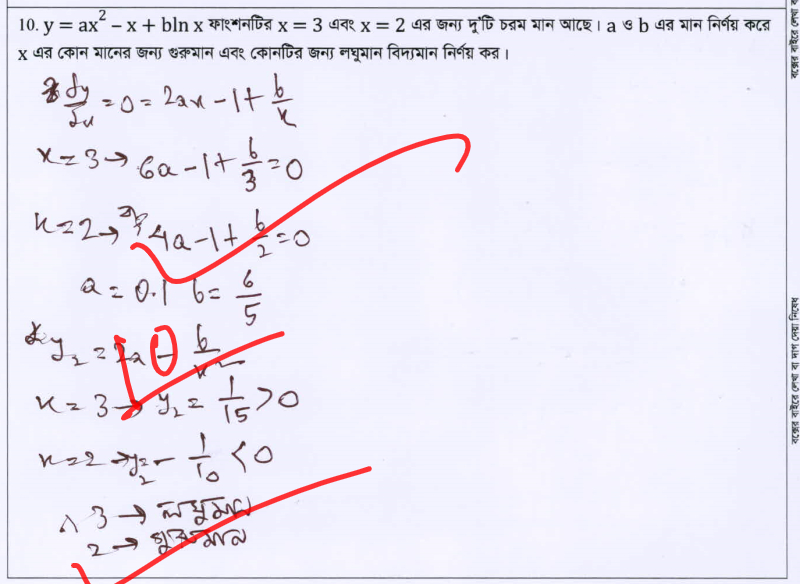 10. y = ax² – x + bln x ফাংশনটির x = 3 এবং x = 2 এর জন্য দু'টি চরম মান আছে। a ও b এর মান নির্ণয় করে
x এর কোন মানের জন্য গুরুমান এবং কোনটির জন্য লঘুমান বিদ্যমান নির্ণয় কর।
dy/dx = 0 = 2ax – 1 + b/x
x = 3 → 6a – 1 + b/3 = 0
x = 2 → 4a – 1 + b/2 = 0
a = 0.1 b = 6/5
y₂ = 2a – b/x²
x = 3 → y₂ = 1/15 > 0
x = 2 → y₂ = – 1/10 < 0
∧ 3 → লঘুমান
2 → গুরুমান
বক্সের বাইরে লেখা বা দাগ দেয়া নিষেধ
বক্সের বাইরে লেখা ব